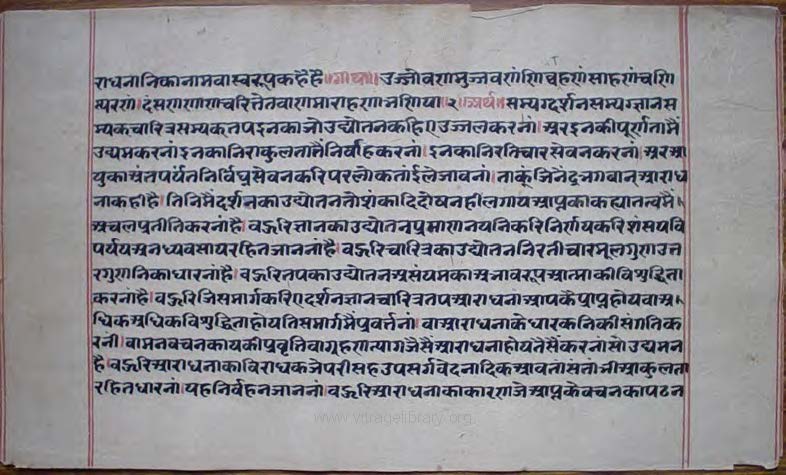 राधनानिकानामवास्वरूपकहैहै॥गाथा॥उज्जोवणमुज्जवणंणिव्वहणंसाहणंचणि
म्वरणं॥दंसणणाणचरित्तेतवाणमाराहणाभणिया॥२॥अर्थ॥सम्यग्दर्शनसम्यग्ज्ञानस
म्यकचारित्रसम्यकतपइनकाजोउद्योतनकहिएउज्जलकरनां।अरइनकीपूर्णतामैं
उद्यमकरनां।इनकानिराकुलतातैंनिर्वाहकरनां।इनकानिरतिचारसेवनकरनां।अरआ
युकाअंतपर्यंतनिर्विघ्नसेवनकरिपरलोकतांईलेजावनां।ताकूंजिनेंद्रभगवान्आराध
नाकहीहै।तिनिमैंदर्शनकाउद्योतनतोशंकादिदोषनहीलगायआप्तकाकह्यातत्वमैं
अचलप्रतीतिकरनांहै।बहुरिज्ञानकाउद्योतनप्रमाणनयनिकरिनिर्णयकरिशंसयवि
पर्ययअनध्यवसायरहितजाननांहै।बहुरिचारित्रकाउद्योतननिरतीचारमूलगुणउत्त
रगुणनिकाधारनांहै।बहुरितपकाउद्योतनअसंयमकाअभावरूपआत्माकीविशुद्धिता
करनांहै।बहुरिजिसमार्गकरिएदर्शनज्ञानचारित्रतपआराधनांआपकैप्राप्तहोयवाअ
धिकअधिकविशुद्धिताहोयतिसमार्गमैंप्रवर्त्तनां।वाआराधनाकेधारकनिकीसंगतिक
रनी।वामनवचनकायकीप्रवृत्तिवाग्रहणत्यागजैसैंआराधनाहोयतैसैंकरनांसोउद्यमन
है।बहुरिआराधनाकाविराधकजेपरीसहउपसर्गवेदनादिकआवतांसंतांभीआकुलता
रहितधारनां।यहनिर्वहनजाननां।बहुरिआराधनाकाकारणजेआप्तकेवचनकापठन
www.vitragelibrary.org